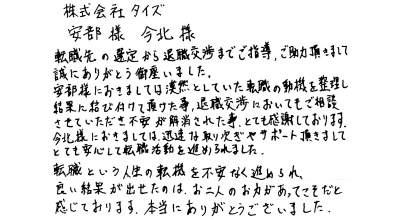 株式会社タイズ
安部様 今北様
転職先の選定から退職交渉までご指導、ご助力頂きまして
誠にありがとう御座いました。
安部様におきましては漠然としていた転職の動機を整理し
結果に結び付けて頂けた事、退職交渉においてもご相談
させていただき不安が解消された事、とても感謝しております。
今北様におきましては、迅速な取り次ぎやサポート頂きまして
とても安心して転職活動を進められました。
転職という人生の転機を不安なく進められ、
良い結果が出せたのは、お二人のお力があってこそだと
感じております。本当にありがとうございました。